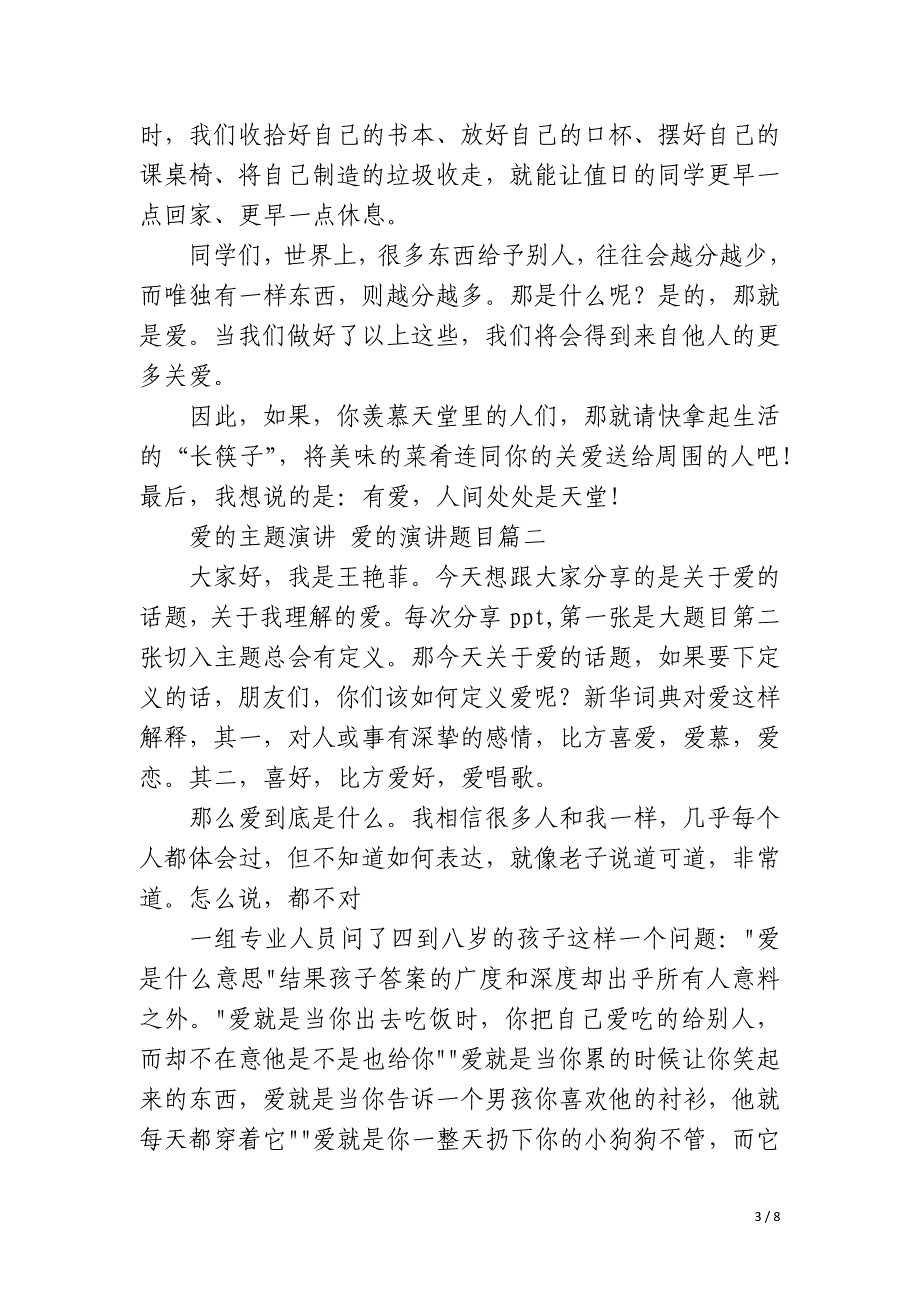 时，我们收拾好自己的书本、放好自己的口杯、摆好自己的
课桌椅、将自己制造的垃圾收走，就能让值日的同学更早一
点回家、更早一点休息。
同学们，世界上，很多东西给予别人，往往会越分越少，
而唯独有一样东西，则越分越多。那是什么呢？是的，那就
是爱。当我们做好了以上这些，我们将会得到来自他人的更
多关爱。
因此，如果，你羡慕天堂里的人们，那就请快拿起生活
的“长筷子”，将美味的菜肴连同你的关爱送给周围的人吧！
最后，我想说的是：有爱，人间处处是天堂！
爱的主题演讲 爱的演讲题目篇二
大家好，我是王艳菲。今天想跟大家分享的是关于爱的
话题，关于我理解的爱。每次分享 ppt,第一张是大题目第二
张切入主题总会有定义。那今天关于爱的话题，如果要下定
义的话，朋友们，你们该如何定义爱呢？新华词典对爱这样
解释，其一，对人或事有深挚的感情，比方喜爱，爱慕，爱
恋。其二，喜好，比方爱好，爱唱歌。
那么爱到底是什么。我相信很多人和我一样，几乎每个
人都体会过，但不知道如何表达，就像老子说道可道，非常
道。怎么说，都不对
一组专业人员问了四到八岁的孩子这样一个问题："爱
是什么意思"结果孩子答案的广度和深度却出乎所有人意料
之外。"爱就是当你出去吃饭时，你把自己爱吃的给别人，
而却不在意他是不是也给你""爱就是当你累的时候让你笑起
来的东西，爱就是当你告诉一个男孩你喜欢他的衬衫，他就
每天都穿着它""爱就是你一整天扔下你的小狗狗不管，而它
3 / 8